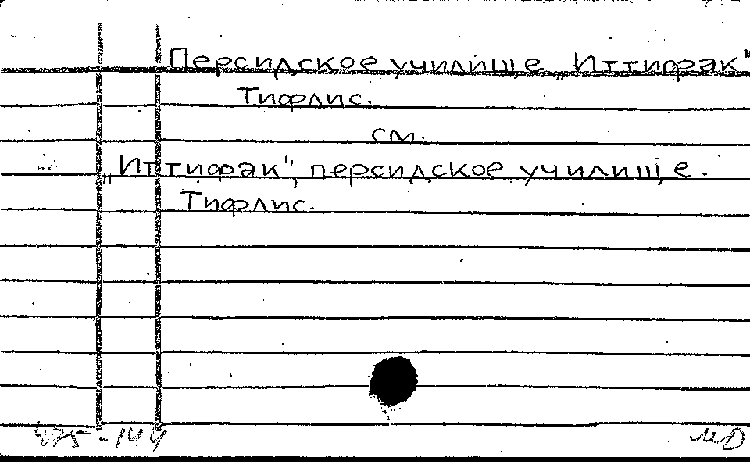 Персидское училище „Иттифак"
Тифлис.
см.
„Иттифак", персидское училище.
Тифлис.
475-144